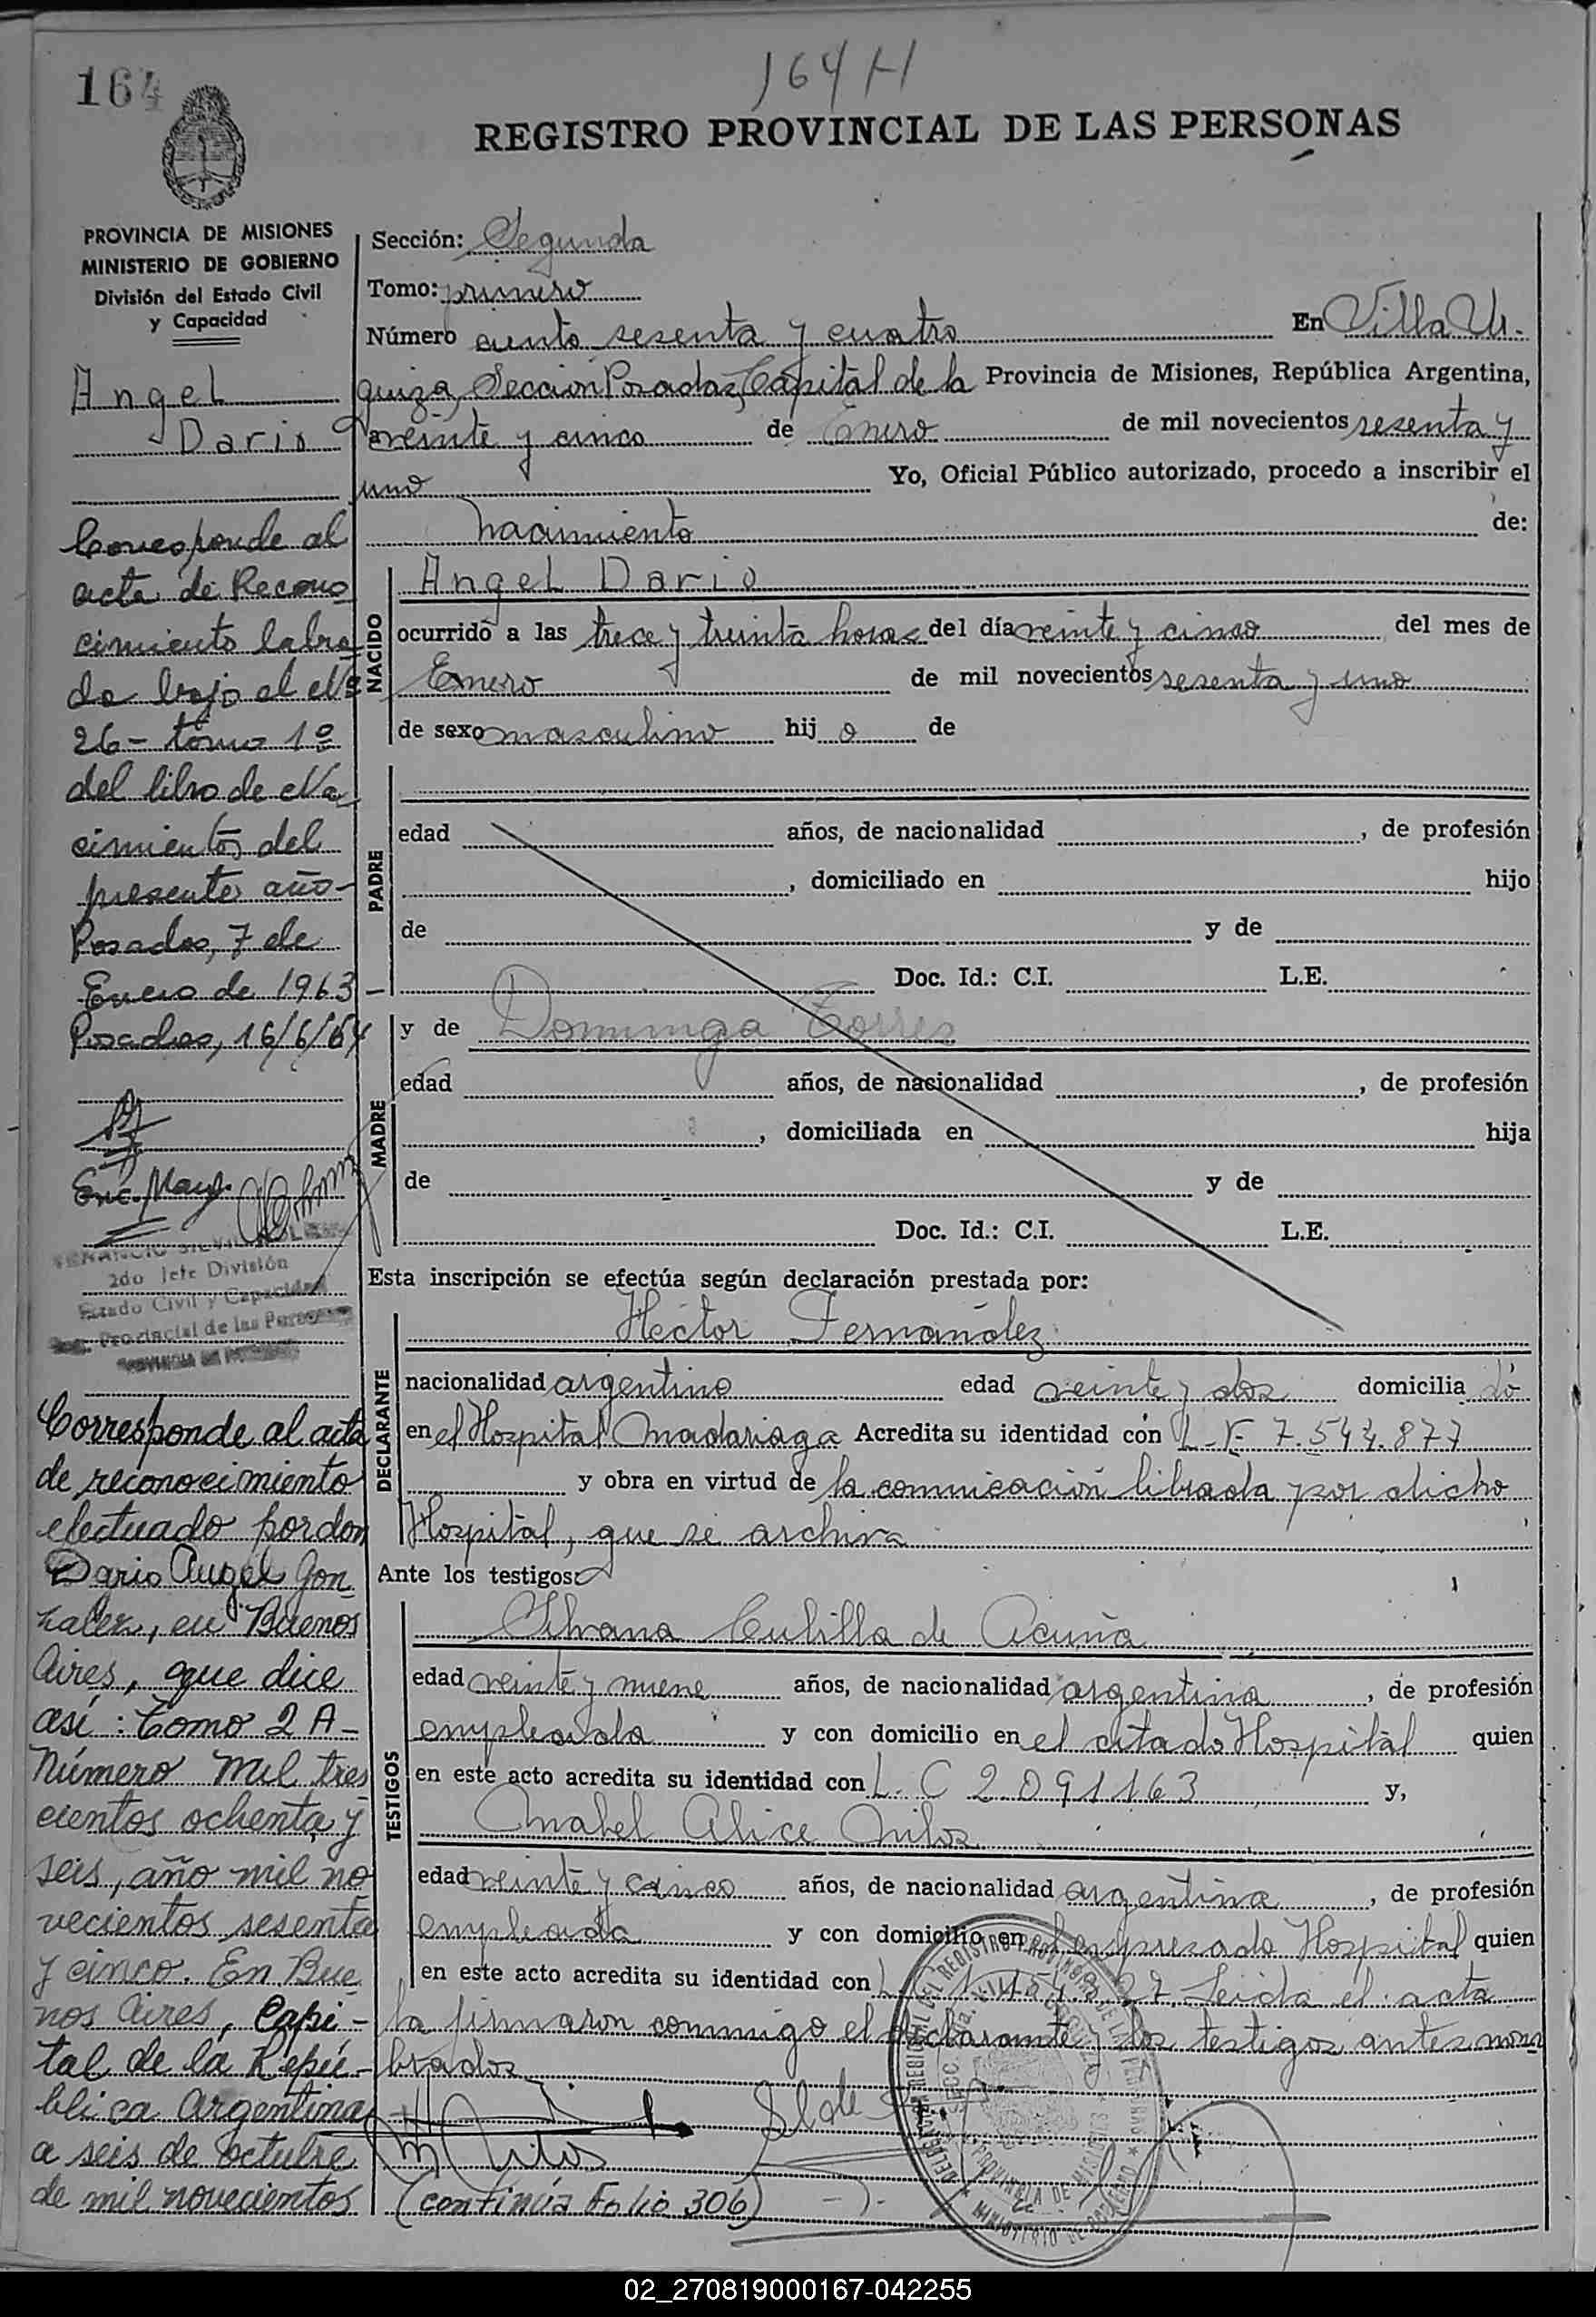 164
164 H
REGISTRO PROVINCIAL DE LAS PERSONAS
PROVINCIA DE MISIONES
MINISTERIO DE GOBIERNO
División del Estado Civil
y Capacidad
Angel
Dario
Corresponde al
acta de Recono
cimiento labra
da bajo el Nº
26 - tomo 1º
del libro de Na
cimientos del
presente año -
Posadas, 7 de
Enero de 1963
Posadas, 16/6/64
Enc. Mayo.
2do Jefe División
Estado Civil y Capacidad
Provincial de las Personas
Corresponde al acta
de reconocimiento
efectuado por don
Dario Angel Gon
zalez, en Buenos
Aires, que dice
así: Tomo 2 A -
Número mil tres
cientos ochenta y
seis, año mil no
vecientos sesenta
y cinco. En Bue
nos Aires, Capi -
tal de la Repú -
blica Argentina
a seis de octubre
de mil novecientos
Sección: Segunda
Tomo: primero
Número ciento sesenta y cuatro En Villa Ur-
quiza, Seccion Posadas, Capital de la Provincia de Misiones, República Argentina,
a veinte y cinco de Enero de mil novecientos sesenta y
uno Yo, Oficial Público autorizado, procedo a inscribir el
nacimiento de:
NACIDO
Angel Dario
ocurrido a las trece y treinta horas del día veinte y cinco del mes de
Enero de mil novecientos sesenta y uno
de sexo masculino hij o de
PADRE
edad años, de nacionalidad , de profesión
, domiciliado en hijo
de y de
Doc. Id.: C.I. L.E.
MADRE
y de Dominga Torres
edad años, de nacionalidad , de profesión
, domiciliada en hija
de y de
Doc. Id.: C.I. L.E.
Esta inscripción se efectúa según declaración prestada por:
DECLARANTE
Héctor Fernández
nacionalidad argentino edad veinte y dos domicilia do
en el Hospital Madariaga Acredita su identidad con L-E 7.544.877
y obra en virtud de la comunicación librada por dicho
Hospital, que se archiva
Ante los testigos:
TESTIGOS
Silvana Cubilla de Acuña
edad veinte y nueve años, de nacionalidad argentina , de profesión
empleada y con domicilio en el citado Hospital quien
en este acto acredita su identidad con L. C 2.091163 y,
Anabel Alice
edad veinte y cinco años, de nacionalidad argentina , de profesión
empleada y con domicilio en el expresado Hospital quien
en este acto acredita su identidad con Leida el acta
la firmaron conmigo el declarante y los testigos antes nom
brados
(continúa Folio 306) -).-
02_270819000167-042255